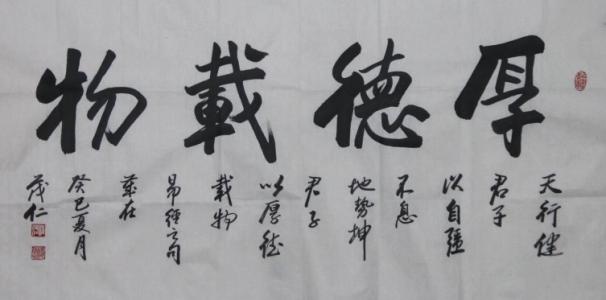 厚德載物
天行健
君子
以自彊
不息
地勢坤
君子
以厚德
載物
易經之句
在
癸巳夏月
茂仁